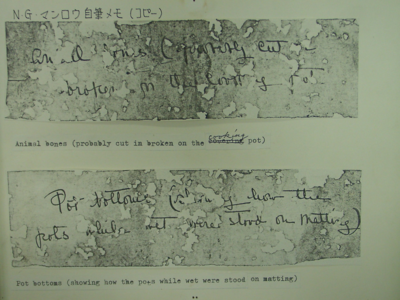 N G・マンロウ自筆メモ (コピー)
Animal bones (probably cut in
broken in the cooking pot
Animal bones (probably cut in broken on the cooking pot)
Pot bottoms (showing how the
pots while wet were stood on matting)
Pot bottoms (showing how the poes while wet were stood on matting)